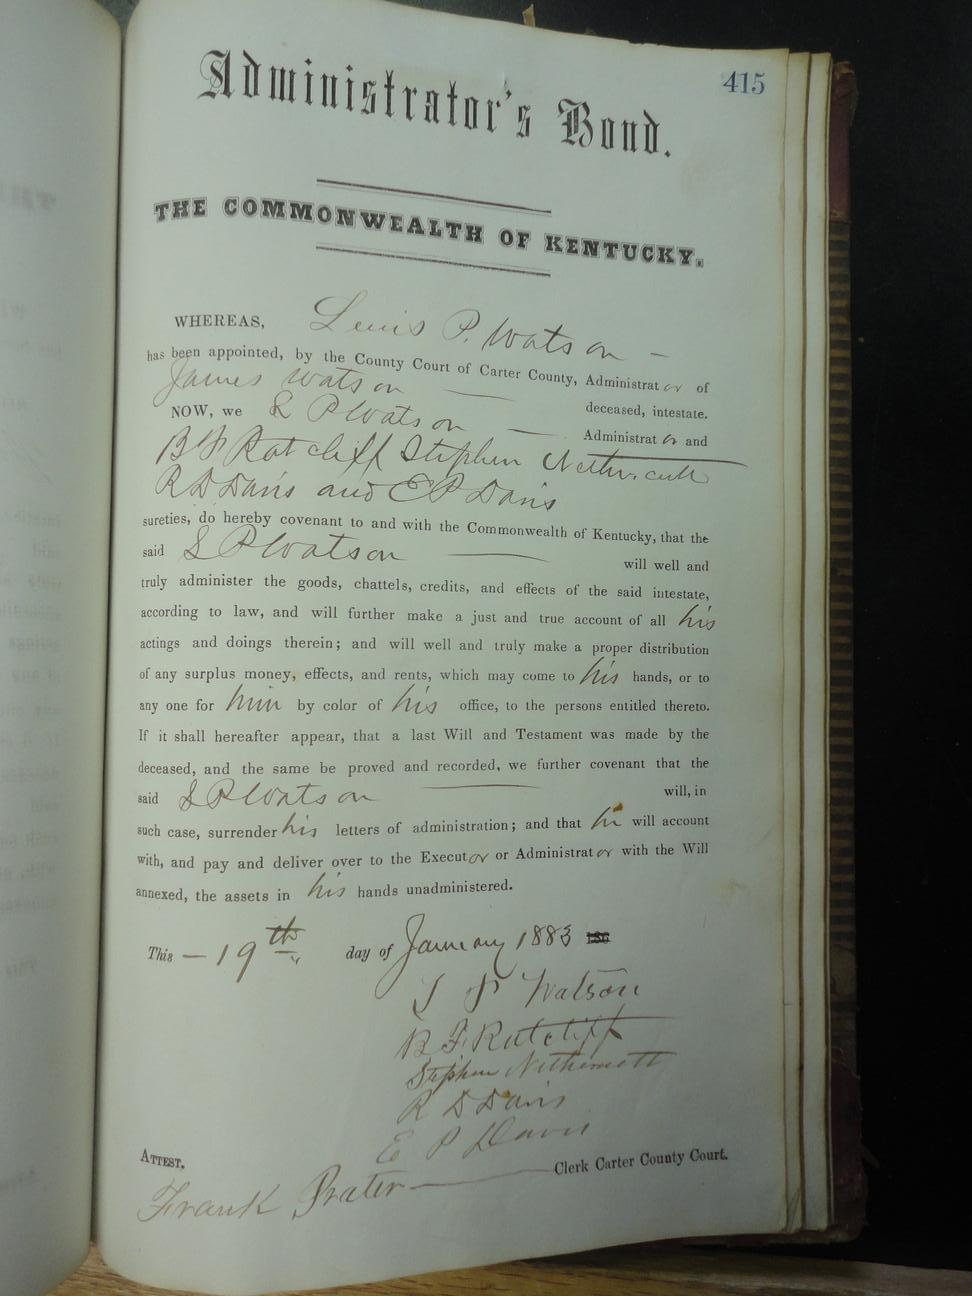 415
Administrator's Bond.
THE COMMONWEALTH OF KENTUCKY.
WHEREAS, Lewis P. Watson —
has been appointed, by the County Court of Carter County, Administrator of
James Watson — deceased, intestate.
NOW, we L P Watson — Administrator and
B F Ratcliff Stephen Nethercutt
R D Davis and E P Davis
sureties, do hereby covenant to and with the Commonwealth of Kentucky, that the
said L P Watson — will well and
truly administer the goods, chattels, credits, and effects of the said intestate,
according to law, and will further make a just and true account of all his
actings and doings therein; and will well and truly make a proper distribution
of any surplus money, effects, and rents, which may come to his hands, or to
any one for him by color of his office, to the persons entitled thereto.
If it shall hereafter appear, that a last Will and Testament was made by the
deceased, and the same be proved and recorded, we further covenant that the
said L P Watson — will, in
such case, surrender his letters of administration; and that he will account
with, and pay and deliver over to the Executor or Administrator with the Will
annexed, the assets in his hands unadministered.
This — 19th day of January 1883
P Watson
B. F. Ratcliff
Stephen Nethercutt
R D Davis
E P Davis
ATTEST,
Frank Prater — Clerk Carter County Court.